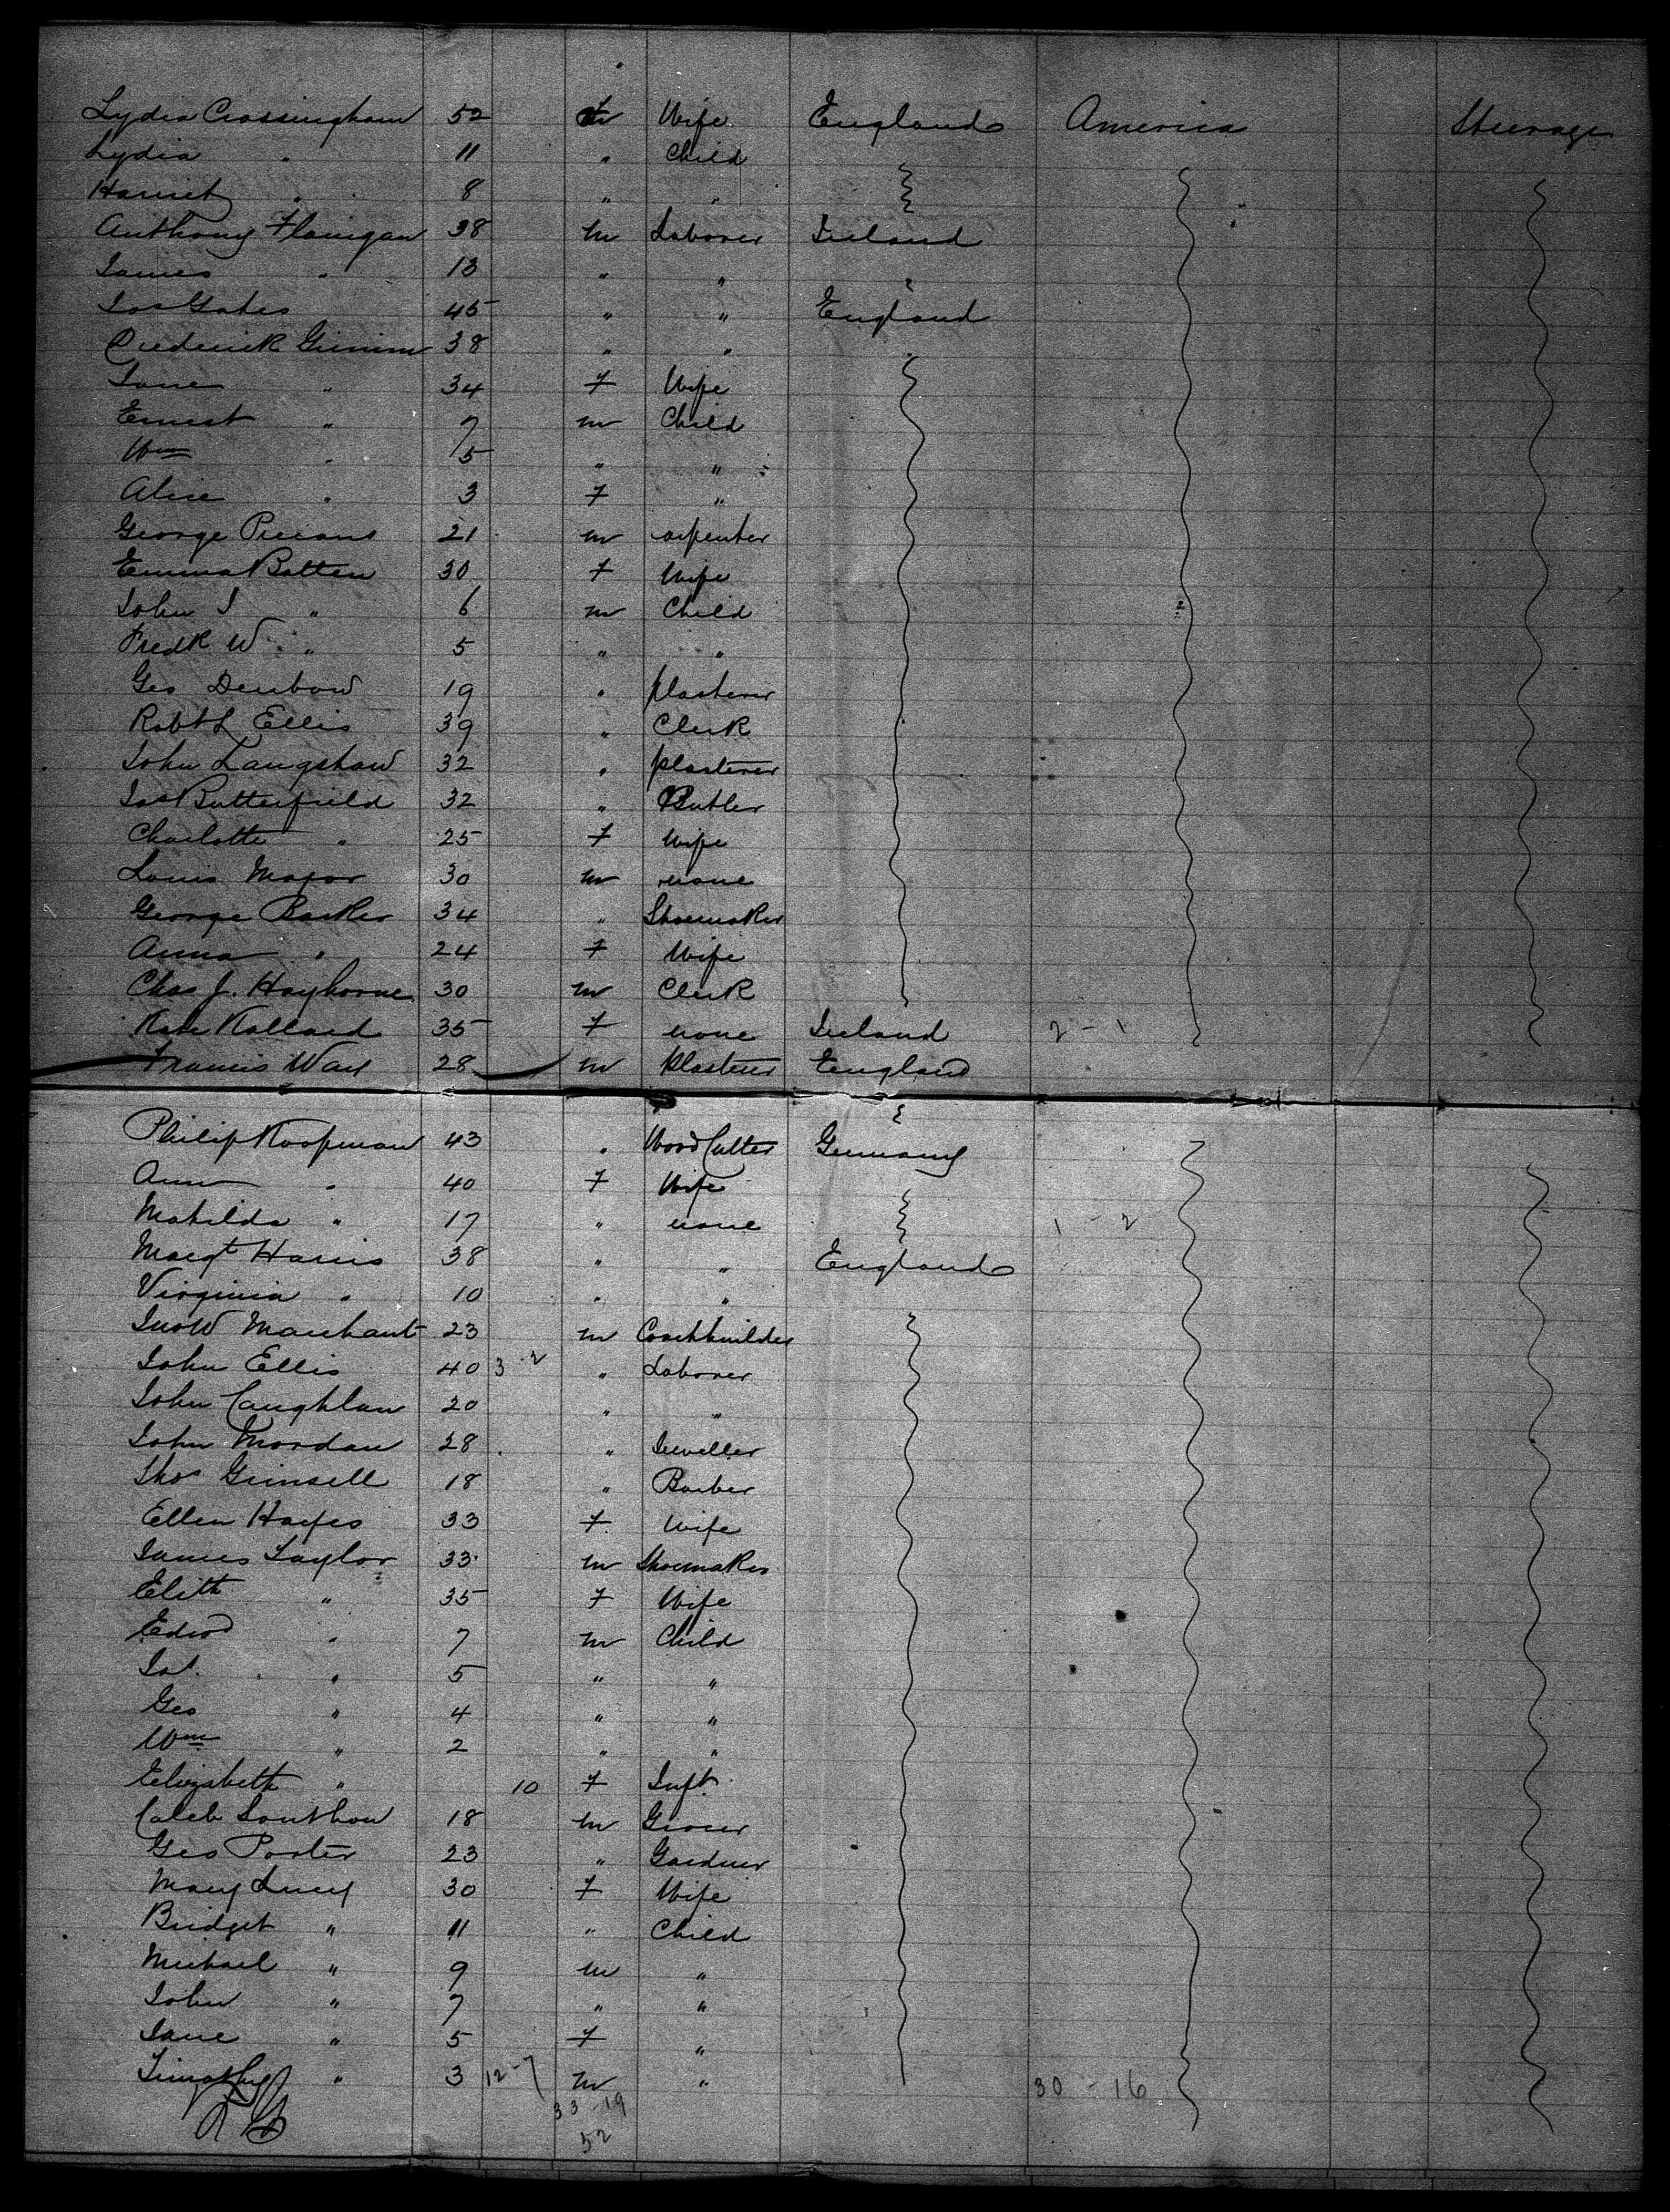 Lydia Crossingham 52 F Wife England America Steerage
Lydia " 11 " Child
Harriet " 8 " "
Anthony Flanigan 38 m Laborer Ireland
James " 13 " " "
Jas Gates 45 " " England
Frederick Grimm 38 " " "
Jane " 34 F Wife
Ernest " 7 m Child
Wm " 5 " "
Alice " 3 F "
George 21 m arpenter
Emma Batten 30 F Wife
John J " 6 m Child
Fredk W " 5 " "
Geo Denbow 19 " plasterer
Robt L Ellis 39 " Clerk
John Langshaw 32 " plasterer
Jas Butterfield 32 " Butler
Charlotte " 25 F Wife
Louis Major 30 m none
George Barker 34 " Shoemaker
Anna " 24 F Wife
Chas J. Hayhorne 30 m Clerk
Kate Kallard 35 F none Ireland 2 - 1
Francis Way 28 m plasterer England
Philip Koopman 43 " Wood Cutter Germany
Ann " 40 F Wife
Matilda " 17 " none 1 - 2
Margt Harris 38 " " England
Virginia " 10 " "
Jno W Marchant 23 m Coachbuilder
John Ellis 40 3 - 2 " Laborer
John Caughlan 20 " "
John Mordau 28 " Jeweller
Thos Grinsell 18 " Barber
Ellen Hayes 33 F Wife
James Taylor 33 m Shoemaker
Elith " 35 F Wife
Edwd " 7 m Child
Jas. " 5 " "
Geo " 4 " "
Wm " 2 " "
Elizabeth " 10 F Inft
Caleb Southow 18 m Grocer
Geo Porter 23 " Gardner
Mary Lucy 30 F Wife
Bridget " 11 " Child
Michael " 9 m "
John " 7 " "
Jane " 5 F "
Timothy " 3 12 - 7 m " 30 - 16
33 - 19
52